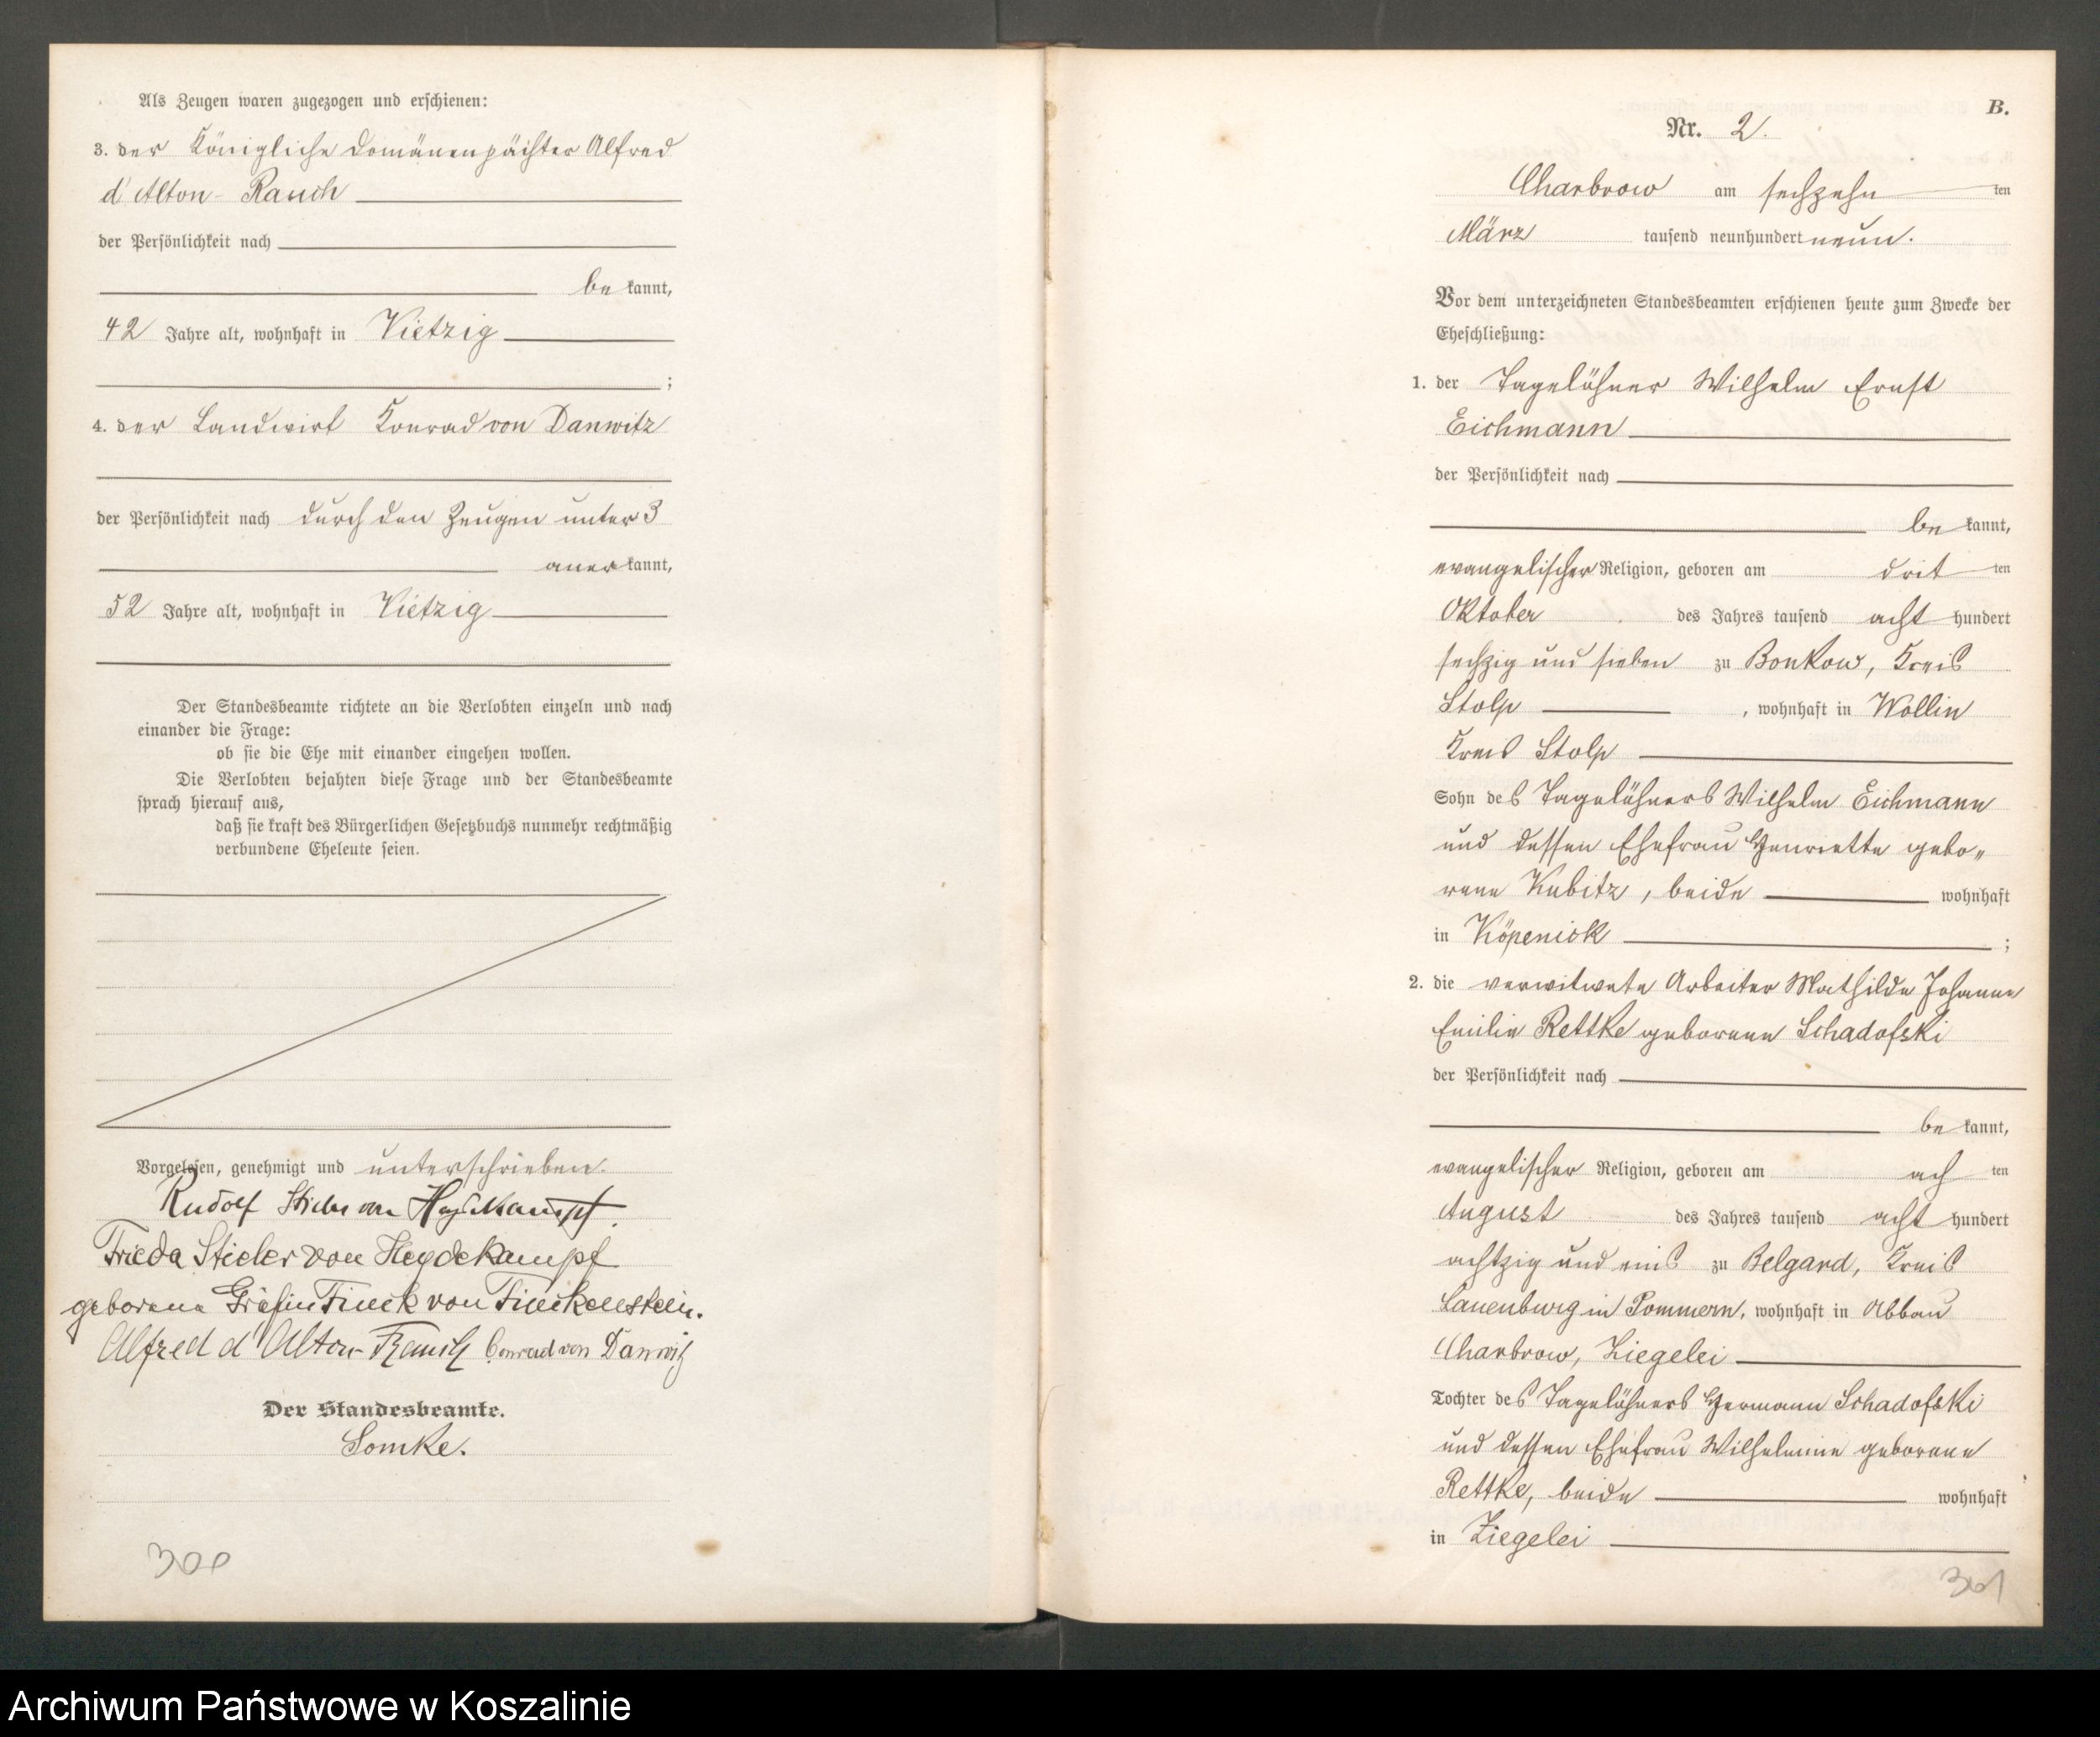 Als Zeugen waren zugezogen und erschienen:
3. der Königliche Domänenpächter Alfred
d'Alton-Rauch
der Persönlichkeit nach
bekannt,
42 Jahre alt, wohnhaft in Vietzig
;
4. der Landwirt Konrad von Danwitz
der Persönlichkeit nach durch den Zeugen unter 3
anerkannt,
52 Jahre alt, wohnhaft in Vietzig
Der Standesbeamte richtete an die Verlobten einzeln und nach
einander die Frage:
ob sie die Ehe mit einander eingehen wollen.
Die Verlobten bejahten diese Frage und der Standesbeamte
sprach hierauf aus,
daß sie kraft des Bürgerlichen Gesetzbuchs nunmehr rechtmäßig
verbundene Eheleute seien.
Vorgelesen, genehmigt und unterschrieben.
Rudolf Stieler von Heydekampf.
Frieda Stieler von Heydekampf
geborene Gräfin Finck von Finckenstein.
Alfred d'Alton-Rauch Conrad von Danwitz
Der Standesbeamte.
Lomke.
300
B.
Nr. 2.
Charbrow am sechzehnten
März tausend neunhundert neun.
Vor dem unterzeichneten Standesbeamten erschienen heute zum Zwecke der
Eheschließung:
1. der Tagelöhner Wilhelm Ernst
Eichmann
der Persönlichkeit nach
bekannt,
evangelischer Religion, geboren am dritten
Oktober des Jahres tausend acht hundert
sechzig und sieben zu Bonkow, Kreis
Stolp, wohnhaft in Wollin
Kreis Stolp
Sohn des Tagelöhners Wilhelm Eichmann
und dessen Ehefrau Henriette gebo„
rene Kubitz, beide wohnhaft
in Köpenick ;
2. die verwitwete Arbeiter Mathilde Johanne
Emilie Rettke geborene Schadofski
der Persönlichkeit nach
bekannt,
evangelischer Religion, geboren am achten
August des Jahres tausend acht hundert
achtzig und eins zu Belgard, Kreis
Lauenburg in Pommern, wohnhaft in Abbau
Charbrow, Ziegelei
Tochter des Tagelöhners Hermann Schadofski
und dessen Ehefrau Wilhelmine geborene
Rettke, beide wohnhaft
in Ziegelei
301
Archiwum Państwowe w Koszalinie